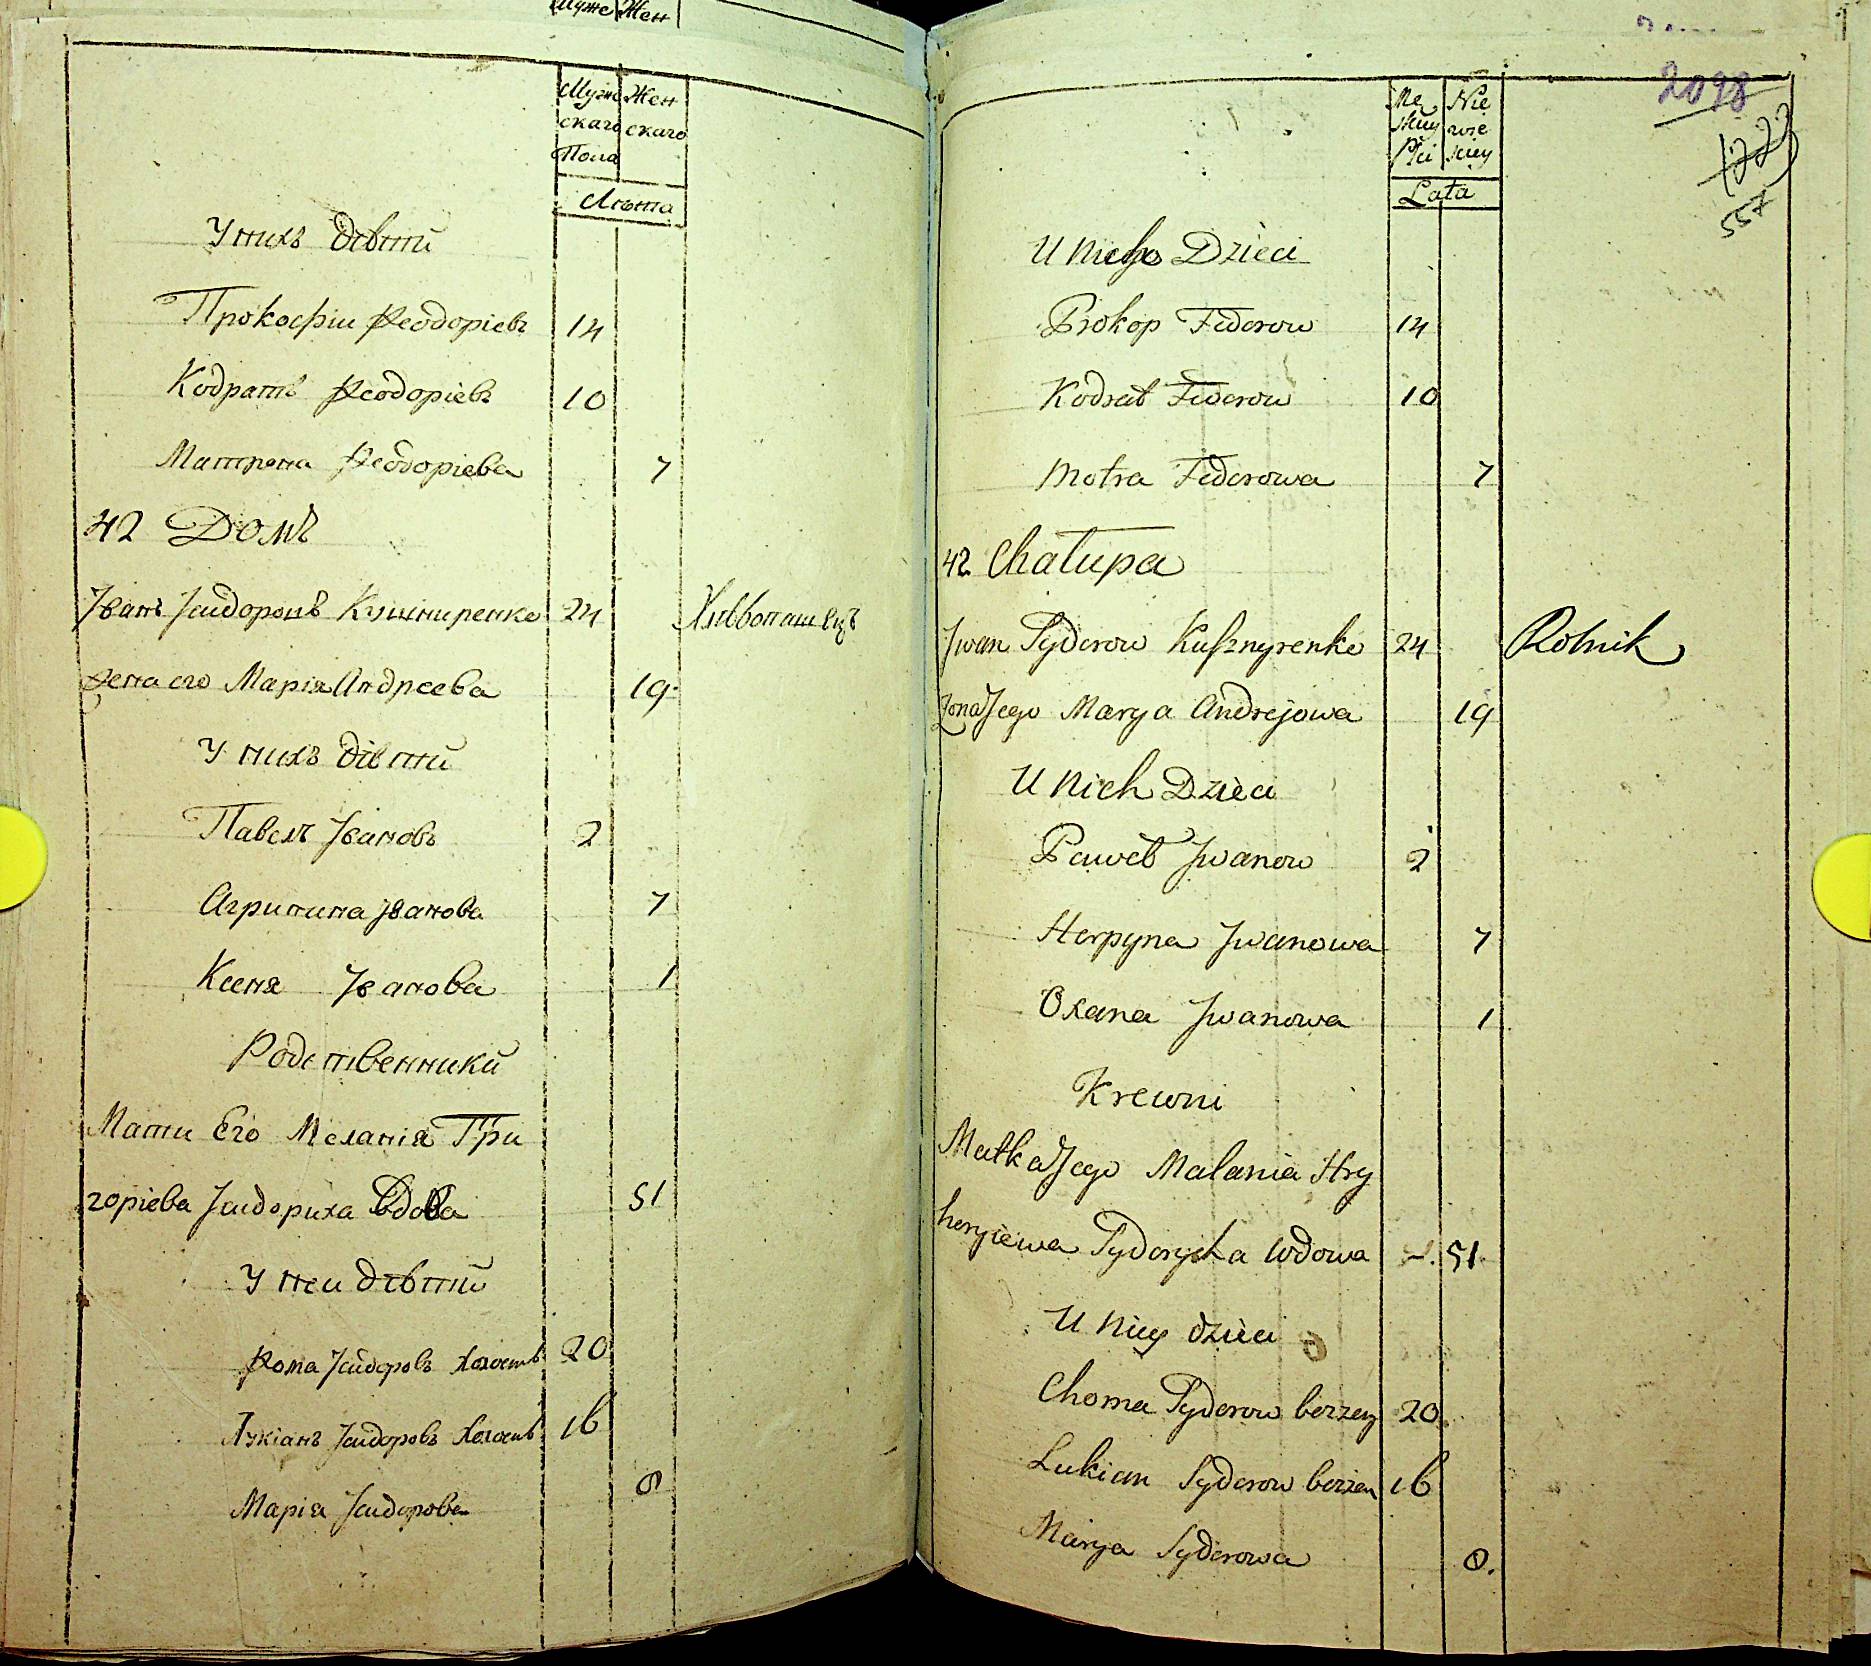 Муже Жен
Муже Жен
скаго скаго
Пола
Лѣта
У нихъ дѣтїй
Прокофїи Ѳеодорїевъ 14
Кодратъ Ѳеодорїевъ 10
Матрона Ѳеодорїева 7
42 Домъ
Іванъ Ісидоровъ Кушниренко 24 Хлѣбопашецъ
Жена его Марїя Андреева 19.
У нихъ дѣтїй
Павелъ Івановъ 2
Агрипина Іванова 7
Ксеня Іванова 1
Родственникй
Мати Его Меланїя Гри
горїева Ісидориха Вдова 51
У неи дѣтїй
Ѳома Ісидоровъ Холостъ 20
Лукїанъ Ісидоровъ Холостъ 16
Марїя Ісидорова 8
2098
1223
557
Mę Nie
skiey wie
Płci sciey
Lata
U Nich Dzieci
Prokop Fedorow 14
Kodrat Fedorow 10
Motra Fedorowa 7
42 Chałupa
Jwan Sydorow Kusznyrenko 24 Rolnik
Zona Jego Marya Andrejowa 19
U Nich Dzieci
Paweł Jwanow 2
Harpyna Jwanowa 7
Oxana Jwanowa 1
Krewni
Matka Jego Malania Hry
horyiewa Sydorycha wdowa 51.
U Niey dzieci
Choma Sydorow bezzen 20
Lukian Sydorow bezzen 16
Marya Sydorowa 8.